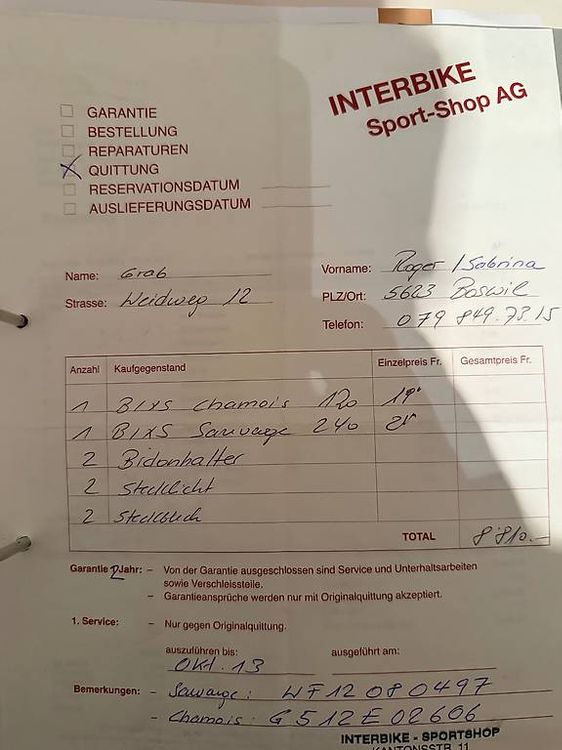 INTERBIKE
Sport-Shop AG
GARANTIE
BESTELLUNG
REPARATUREN
QUITTUNG
RESERVATIONSDATUM
AUSLIEFERUNGSDATUM
Name: Grab
Vorname: Roger / Sabrina
Strasse: Weidweg 12
PLZ/Ort: 5623 Boswil
Telefon: 079 849.73.15
Anzahl Kaufgegenstand Einzelpreis Fr. Gesamtpreis Fr.
1 BIXS Chamois 120
1 BIXS Sauvage 240
2 Bidonhalter
2 Stecklicht
2 Steckblech
TOTAL 8'810.–
Garantie 2 Jahr: – Von der Garantie ausgeschlossen sind Service und Unterhaltsarbeiten
sowie Verschleissteile.
– Garantieansprüche werden nur mit Originalquittung akzeptiert.
1. Service: – Nur gegen Originalquittung.
auszuführen bis: ausgeführt am:
Okt. 13
Bemerkungen: – Sauvage: WF12080497
– Chamois: G512E02606
INTERBIKE - SPORTSHOP
KANTONSSTR. 11